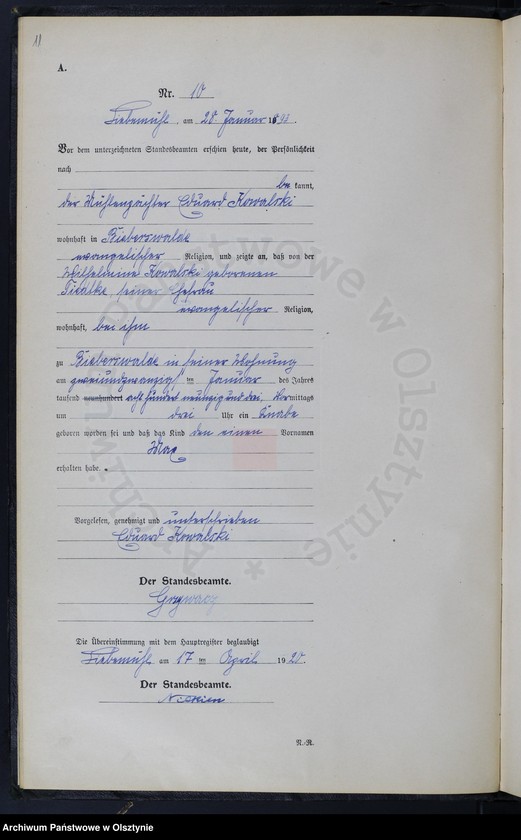 11
A.
Nr. 10
Liebemühl, am 28 Januar 1893.
Vor dem unterzeichneten Standesbeamten erschien heute, der Persönlichkeit
nach
be kannt,
der Mühlenpächter Eduard Kowalski
wohnhaft in Bieberswalde
evangelischer Religion, und zeigte an, daß von der
Wilhelmine Kowalski geborenen
seiner Ehefrau
evangelischer Religion,
wohnhaft, bei ihm
zu Bieberswalde in seiner Wohnung
am zweiundzwanzigsten Januar des Jahres
tausend neunhundert acht hundert neunzig und drei, Vormittags
um drei Uhr ein Knabe
geboren worden sei und daß das Kind den einen Vornamen
Max
erhalten habe.
Vorgelesen, genehmigt und unterschrieben
Eduard Kowalski
Der Standesbeamte.
Die Übereinstimmung mit dem Hauptregister beglaubigt
Liebemühl am 17 ten April 1920.
Der Standesbeamte.
N.-R.
* Archiwum Państwowe w Olsztynie
Archiwum Państwowe w Olsztynie